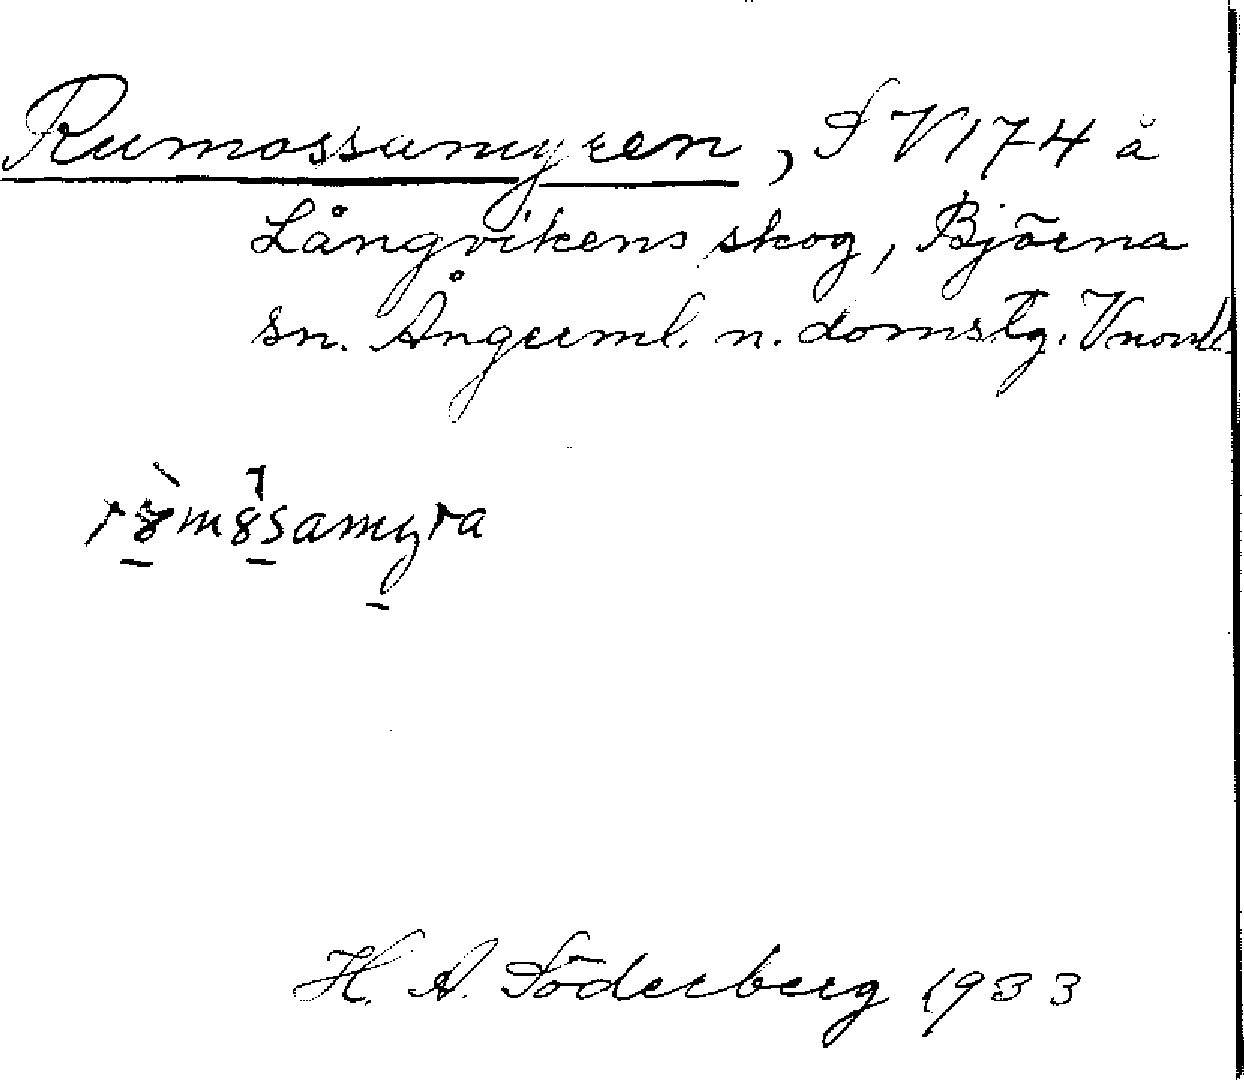 Rumossamyren, S V 174 å
Långvikens skog, Björna
sn. Ångerml. n. domstg. Vnorrl.
rùmo̍samyra
H. A. Söderberg 1933